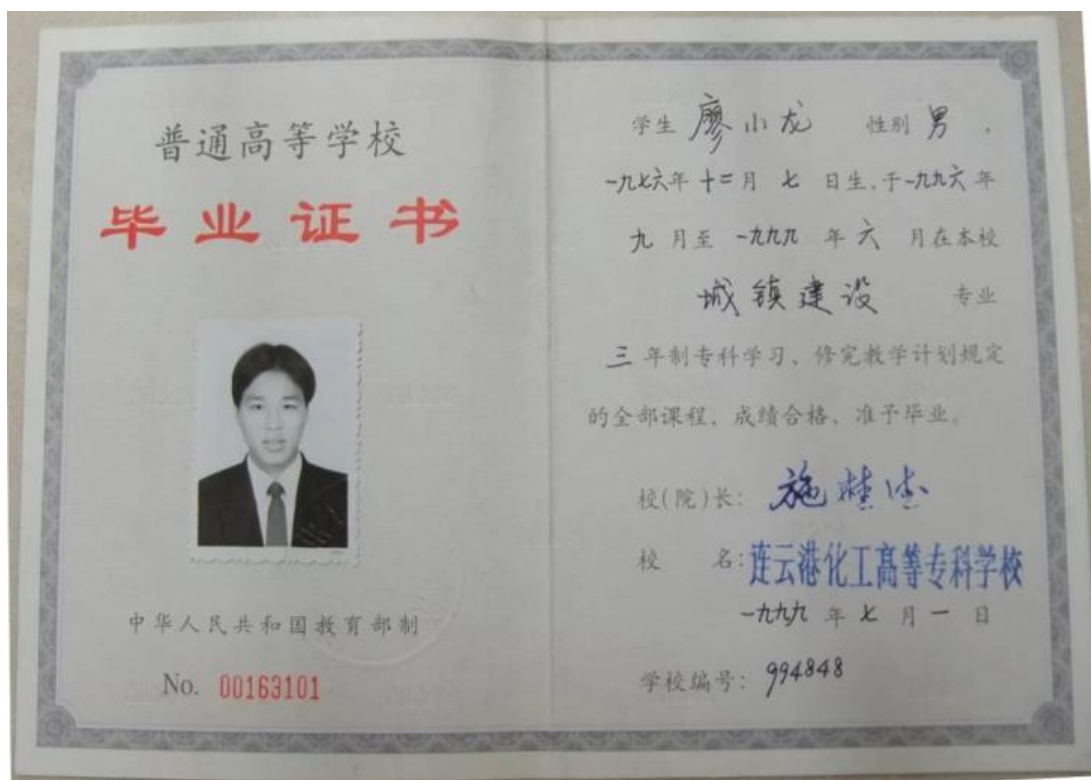 普通高等学校
毕业证书
中华人民共和国教育部制
No. 00163101
学生 廖小龙 性别 男 .
一九七六年 十二月 七 日生,于一九九六年
九 月至 一九九九 年 六 月在本校
城镇建设 专业
三 年制专科学习、修完教学计划规定
的全部课程、成绩合格、准予毕业。
校(院)长: 施桂
校 名: 连云港化工高等专科学校
一九九九 年 七 月 一 日
学校编号: 994848